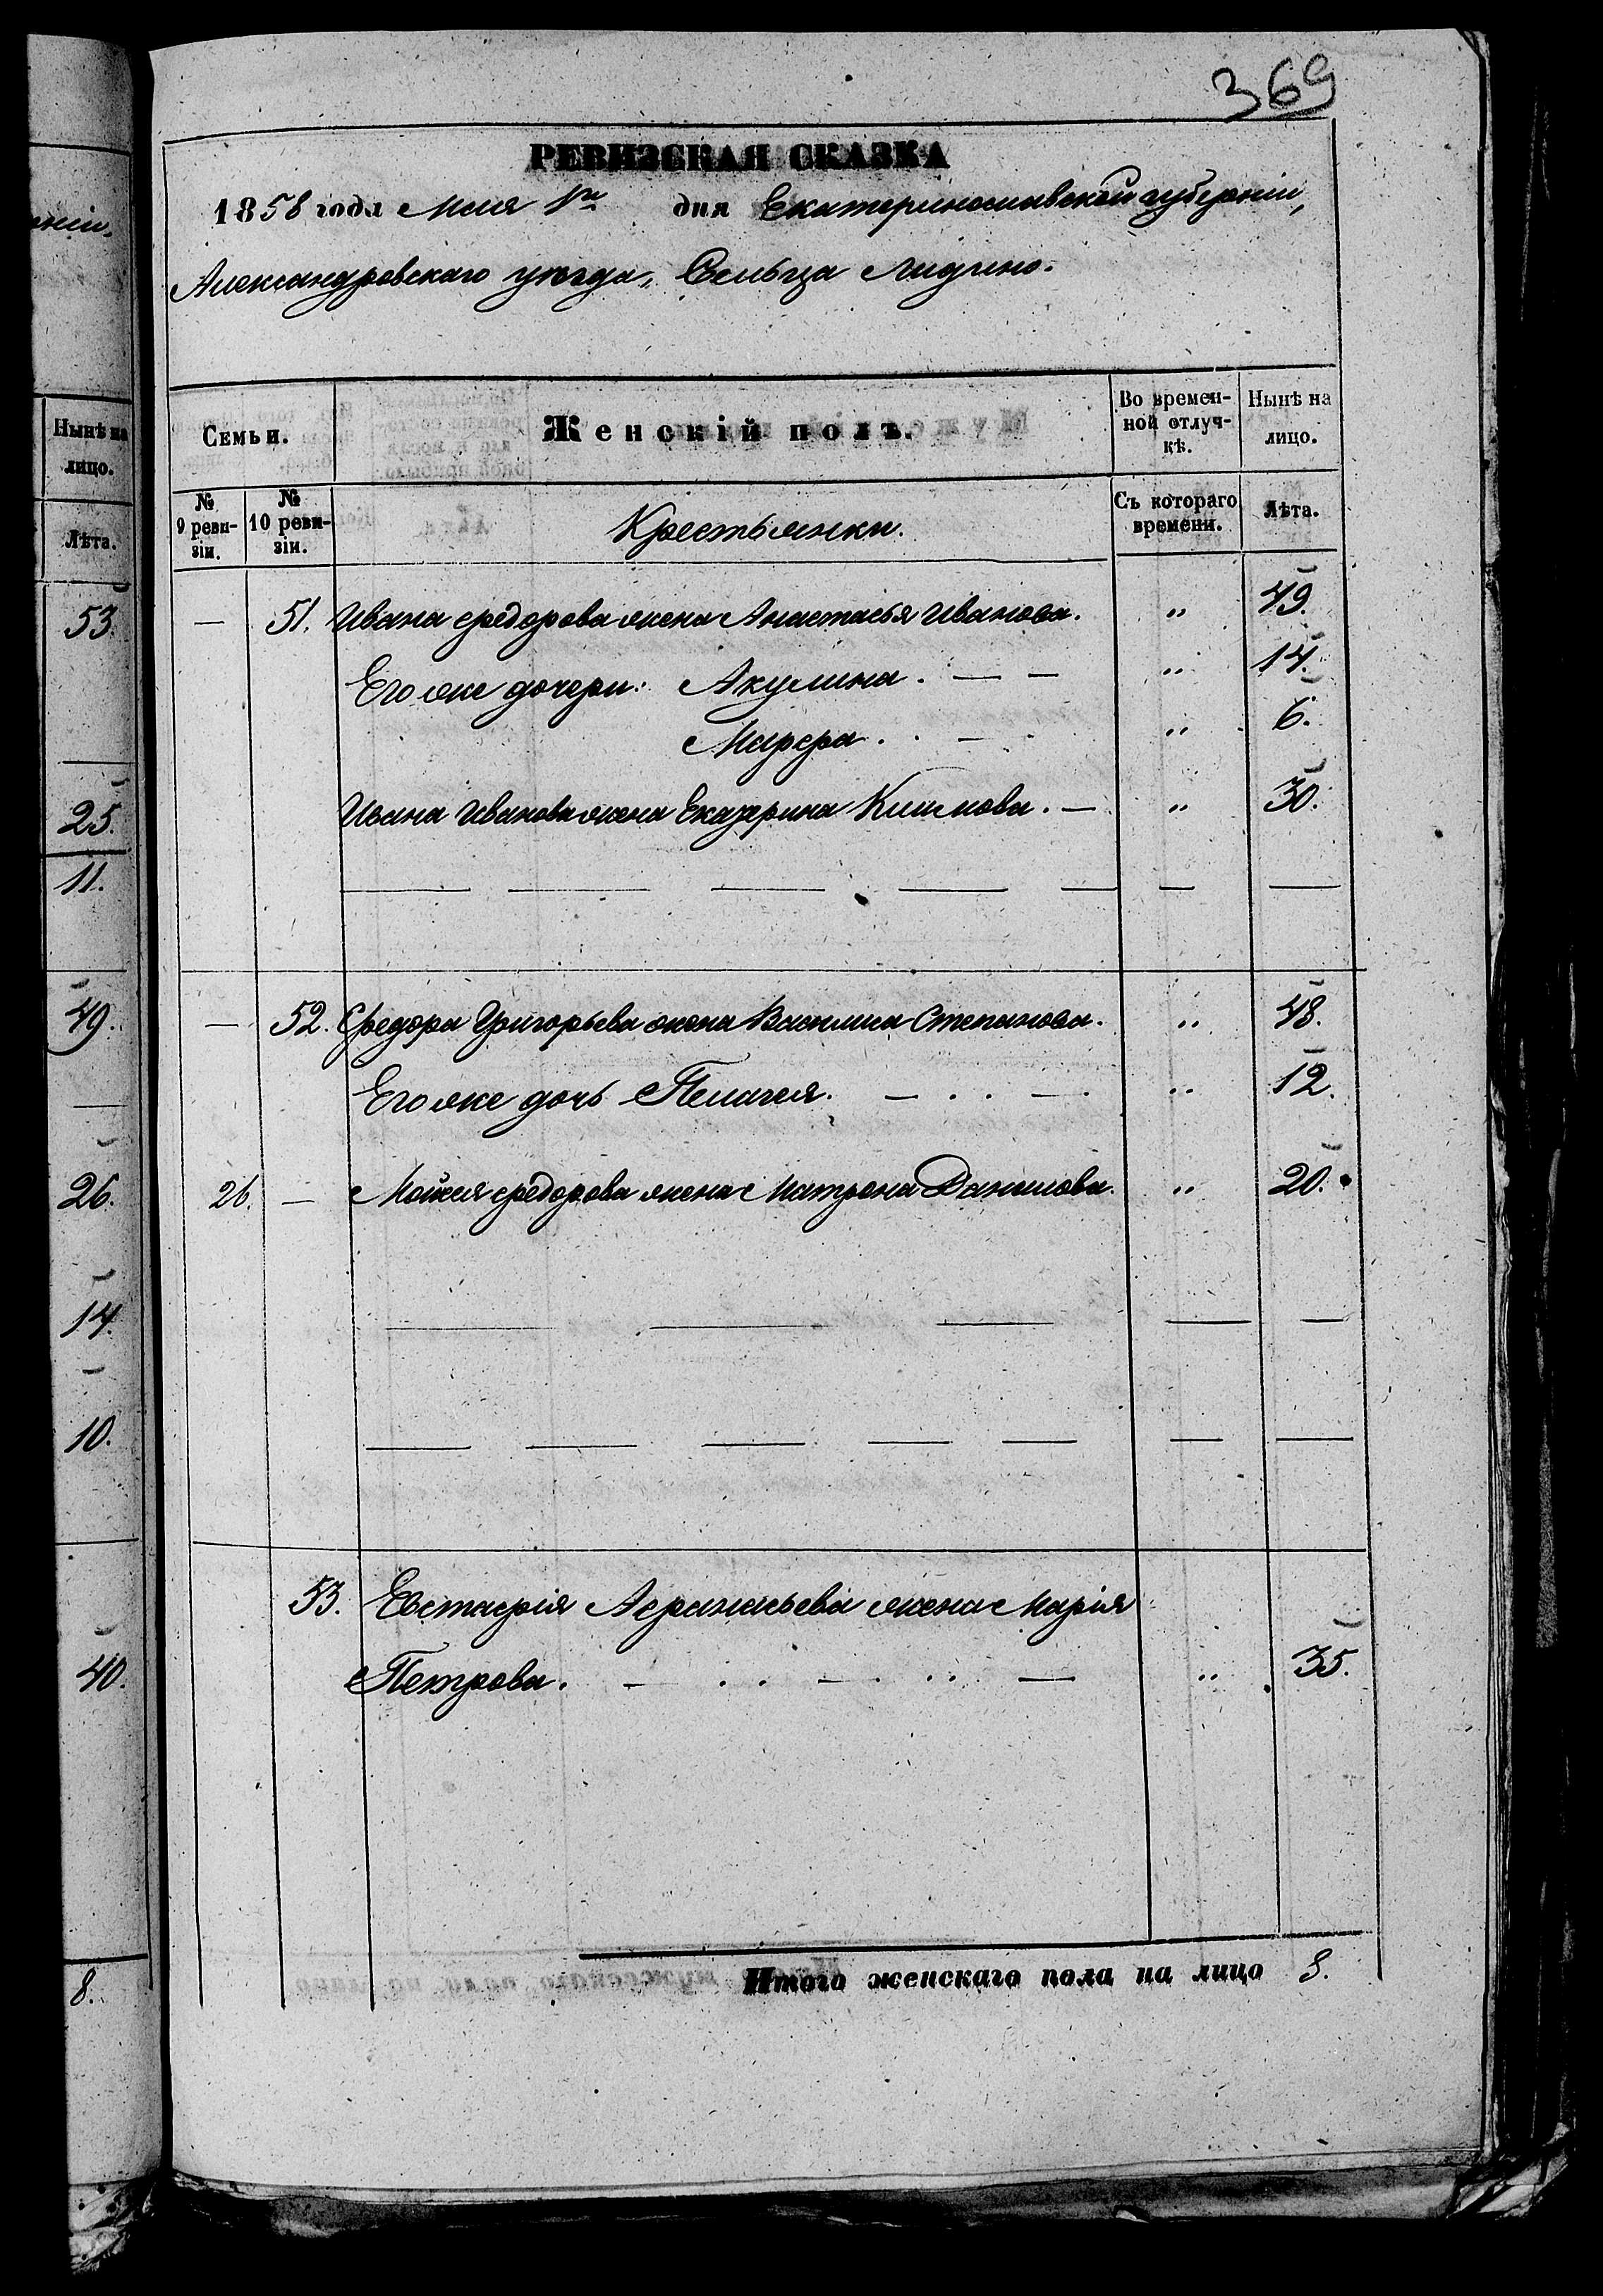 369
РЕВИЗСКАЯ СКАЗКА
1858 года Мая 1го дня Екатеринославской губерніи,
Александровскаго уѣзда, Сельца Лидино.
Семьи.
Женскій полъ.
Во времен-
ной отлуч-
кѣ.
Нынѣ на
лицо.
№
9 реви-
зіи.
№
10 реви-
зіи.
Крестьянки.
Съ котораго
времени.
Лѣта.
— 51. Ивана Федорова жена Анастасья Иванова. „ 49.
Его же дочери: Акулина. — — „ 14.
Марфа. . — „ 6.
Ивана Иванова жена Екатерина Климова. — „ 30.
— 52. Федора Григорьева жена Василиса Степанова. „ 48.
Его же дочь Пелагея. — . . — . „ 12.
26. — Мойсея Федорова жена Матрона Данилова. „ 20.
53. Евстафія Афанасьева жена Марія
Петрова. — . . — . .. — „ 35.
Итого женскаго пола на лицо 8.
ніи,
Нынѣ на
лицо.
Лѣта.
53.
25.
11.
49.
26.
14.
10.
40.
8.